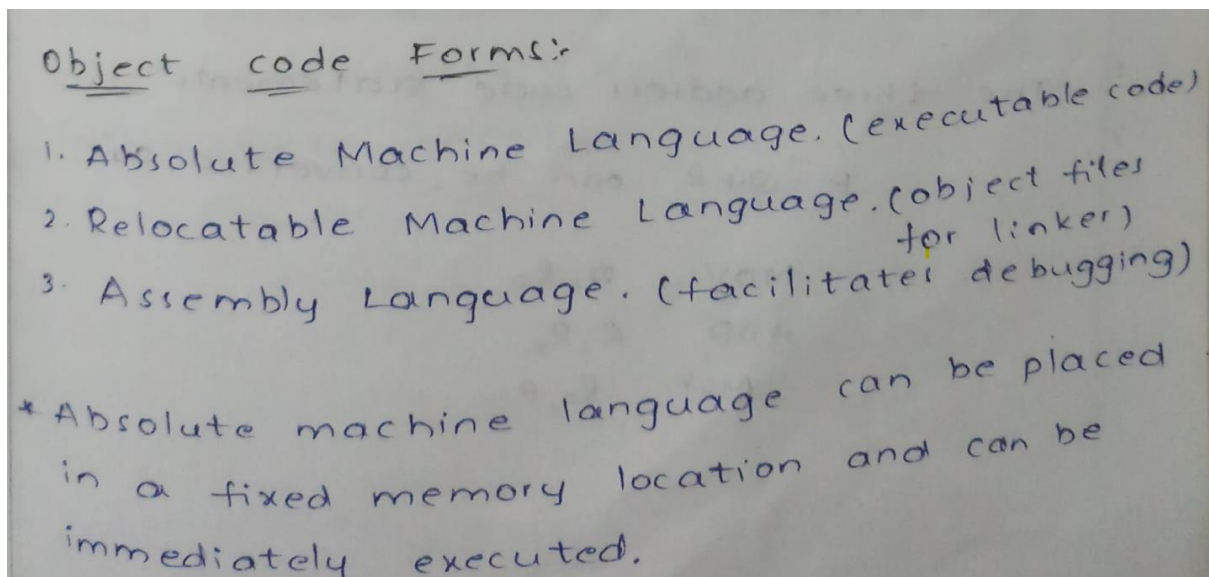 Object code Forms:-
1. Absolute Machine Language. (executable code)
2. Relocatable Machine Language. (object files
for linker)
3. Assembly Language. (facilitates debugging)
* Absolute machine language can be placed
in a fixed memory location and can be
immediately executed.